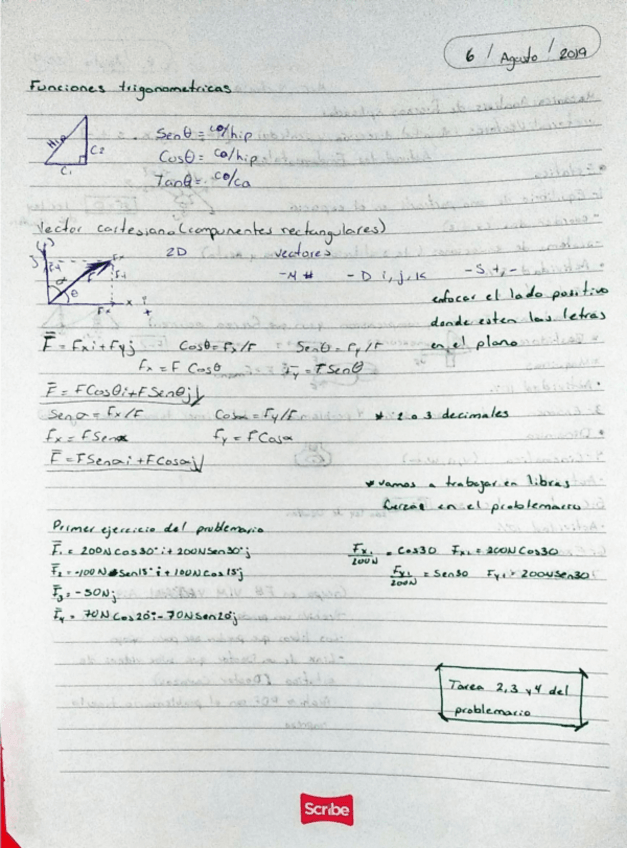 6 / Agosto / 2019
Funciones trigonometricas
Hip
C2
C1
Senθ = co/hip
Cosθ = co/hip
Tanθ = co/ca
Vector cartesiano (componentes rectangulares)
2D vectores
-M # - D i, j, k - S +, -
α
θ
Fx
x i
+
enfocar el lado positivo
donde esten las letras
en el plano
F̄ = Fxi + Fyj Cosθ = Fx/F Senθ = Fy/F
Fx = F Cosθ Fy = F Senθ
F̄ = F Cosθi + F Senθj
Senα = Fx/F Cosα = Fy/F * 2 o 3 decimales
Fx = F Senα Fy = F Cosα
F̄ = F Senαi + F Cosαj
* vamos a trabajar en libras
fuerza en el problemario
Primer ejercicio del problemario
F̄1 = 200N Cos30° i + 200N Sen30° j
F̄2 = -100N Sen15° i + 100N Cos15° j
F̄3 = -50N j
F̄4 = 70N Cos20° i - 70N Sen20° j
Fx1/200N = Cos30 Fx1 = 200N Cos30
Fy1/200N = Sen30 Fy1 = 200N Sen30
Tarea 2, 3 y 4 del
problemario
Scribe